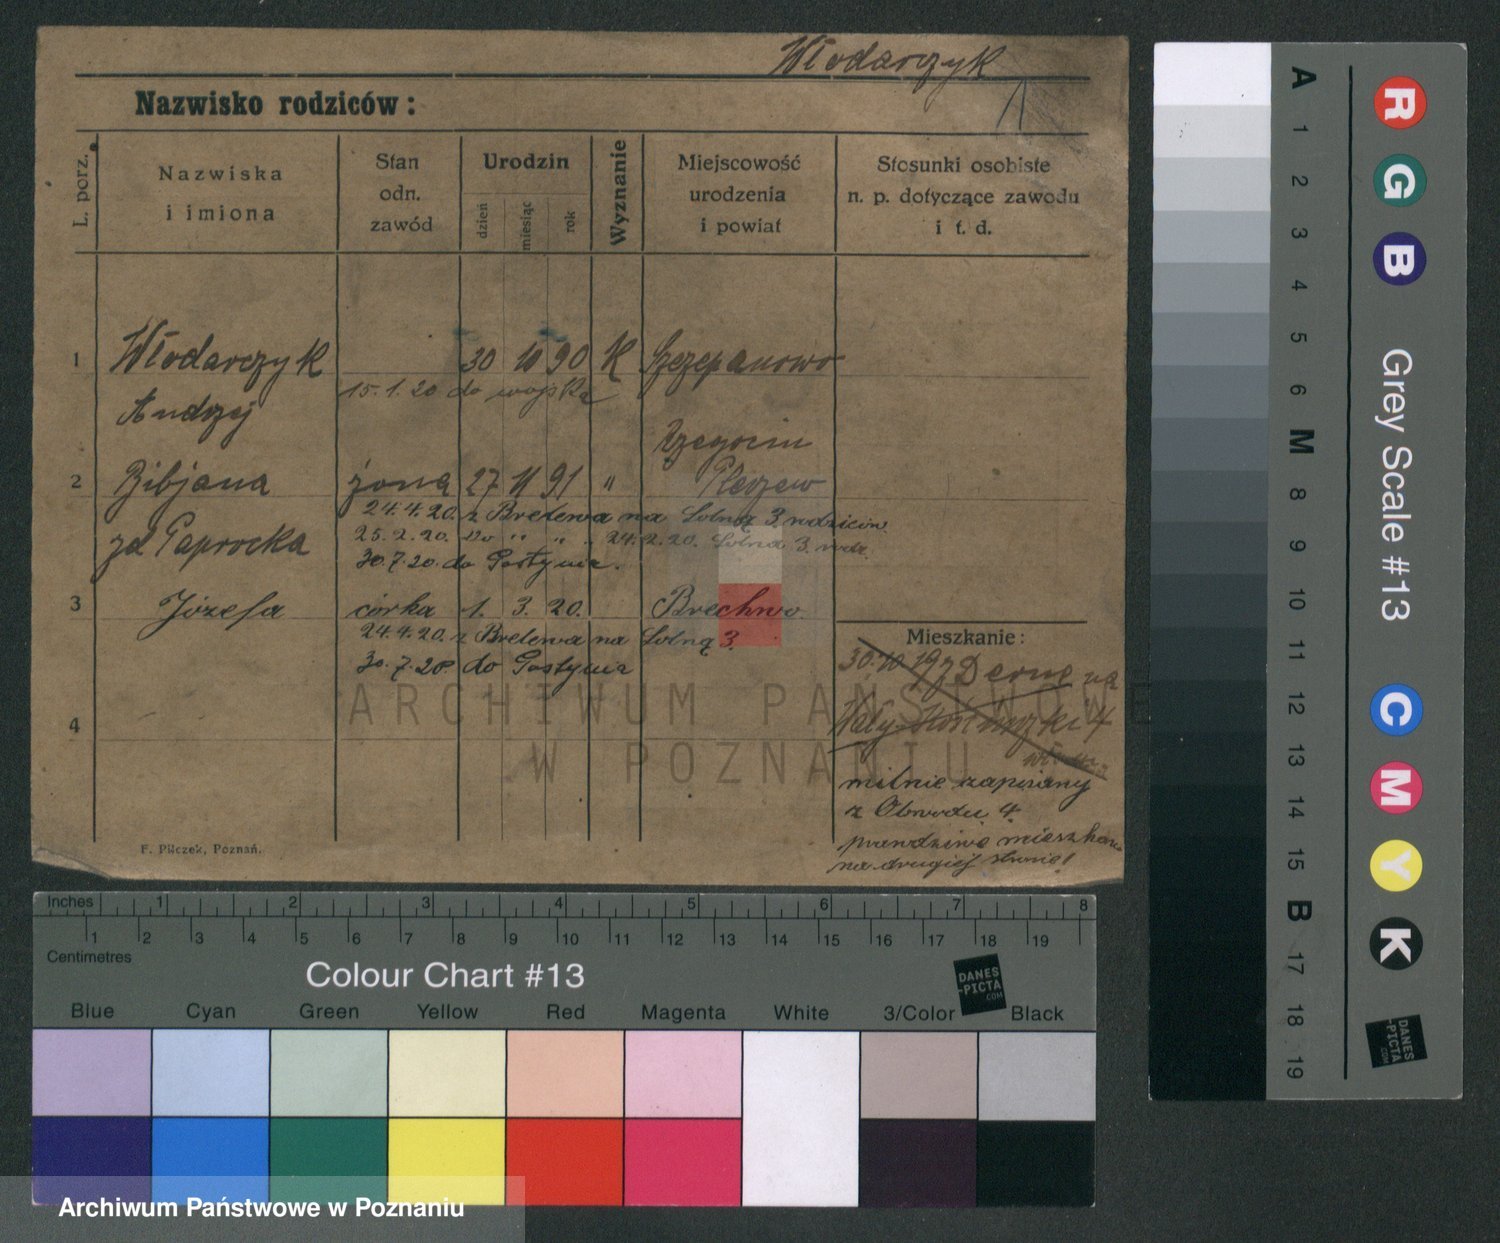 Włodarczyk
Nazwisko rodziców:
L. porz.
Nazwiska
i imiona
Stan
odn.
zawód
Urodzin
dzień
miesiąc
rok
Wyznanie
Miejscowość
urodzenia
i powiat
Stosunki osobiste
n. p. dotyczące zawodu
i t. d.
1 Włodarczyk 30 10 90 K Szczepanowo
15.1.20 do wojska
Andrzej
Rzegocin
2 Bibjana żona 27 11 91 " Pleszew
24.4.20. z Bretewa na Lolną 3 rodziców
zd Paprocka 25.2.20. Do " " . 24.2.20. Lolna 3.
30.7.20. do Gostynia.
3 Józefa córka 1. 3. 20. Brechwo.
24.4.20. z Bretewa na Lolną 3.
30.7.20 do Gostynia
4
Mieszkanie:
30.10 19 z Derne na
Wały 4
milnie zapisany
z Obwodu 4.
prawdziwe mieszkanie
na drugiej stronie!
F. Pilczek, Poznań.
ARCHIWUM PAŃSTWOWE
W POZNANIU
Inches 1 2 3 4 5 6 7 8
1 2 3 4 5 6 7 8 9 10 11 12 13 14 15 16 17 18 19
Centimetres
Colour Chart #13
DANES
-PICTA
.COM
Blue Cyan Green Yellow Red Magenta White 3/Color Black
Archiwum Państwowe w Poznaniu
A 1 2 3 4 5 6 M 8 9 10 11 12 13 14 15 B 17 18 19
R G B
Grey Scale #13
C M Y K
DANES
-PICTA
.COM